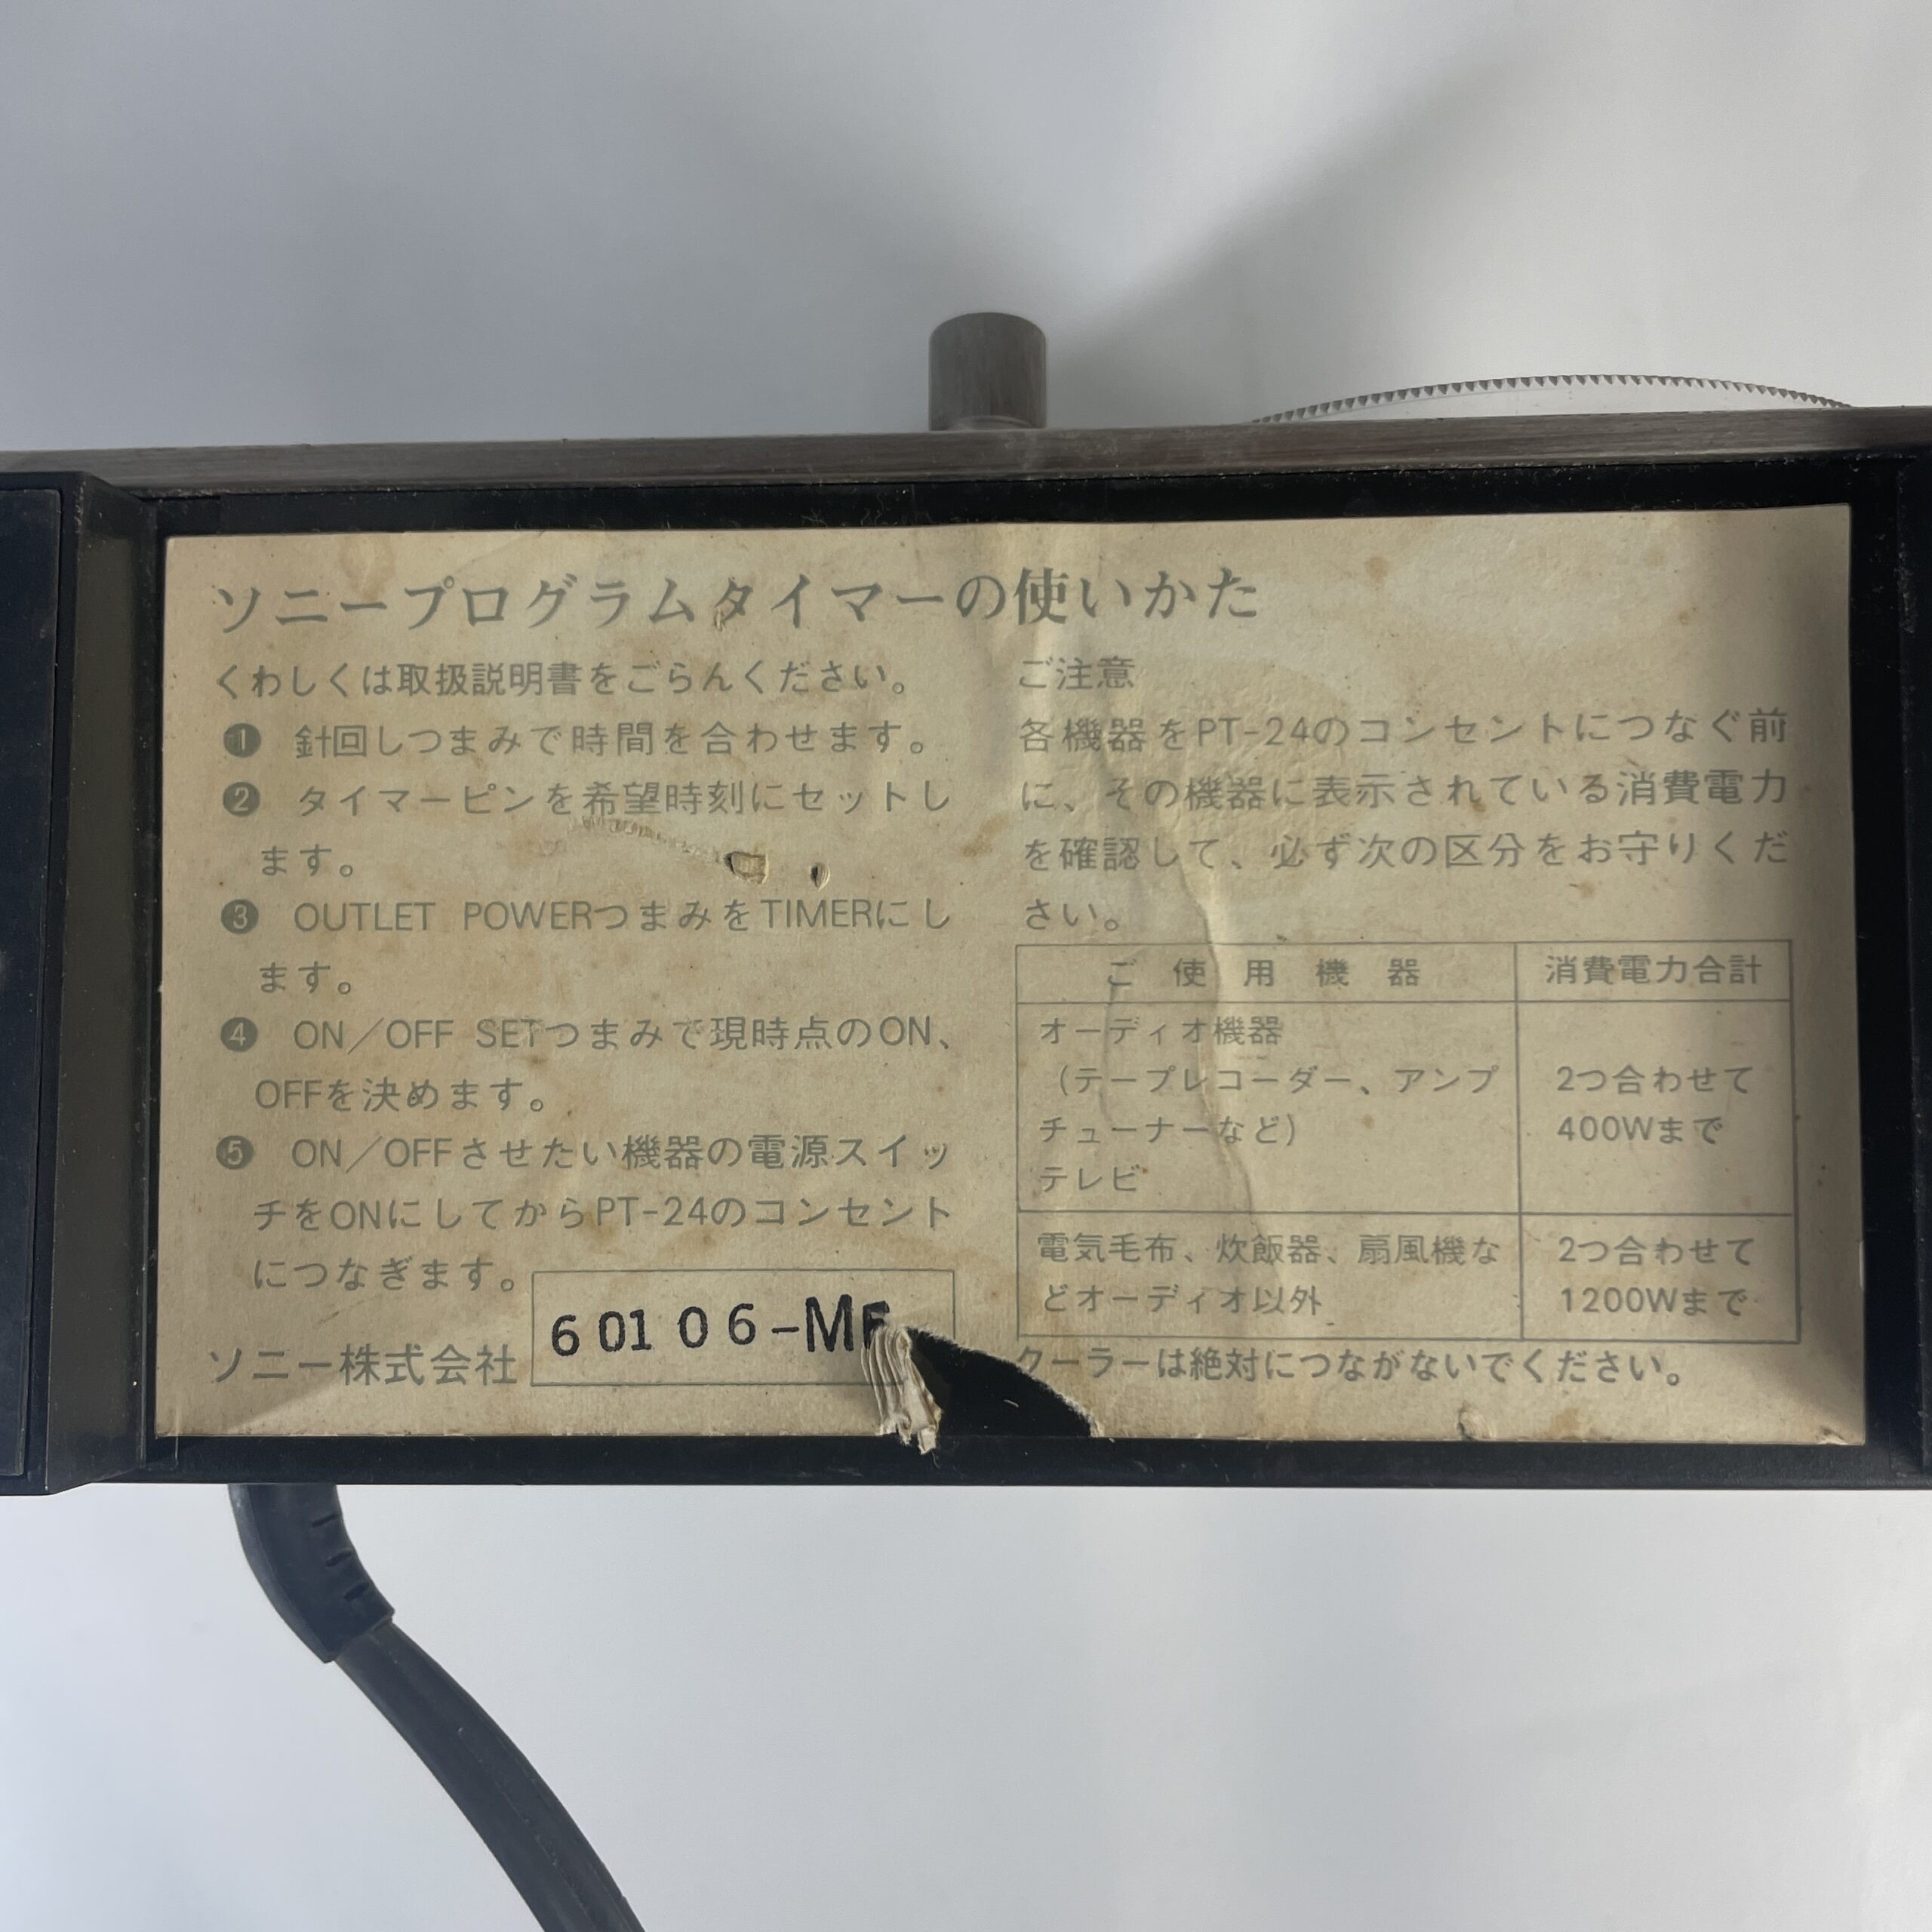 ソニープログラムタイマーの使いかた
くわしくは取扱説明書をごらんください。
❶ 針回しつまみで時間を合わせます。
❷ タイマーピンを希望時刻にセットし
ます。
❸ OUTLET POWERつまみをTIMERにし
ます。
❹ ON/OFF SETつまみで現時点のON、
OFFを決めます。
❺ ON/OFFさせたい機器の電源スイッ
チをONにしてからPT-24のコンセント
につなぎます。
ソニー株式会社
60106-M
ご注意
各機器をPT-24のコンセントにつなぐ前
に、その機器に表示されている消費電力
を確認して、必ず次の区分をお守りくだ
さい。
ご使用機器 消費電力合計
オーディオ機器
(テープレコーダー、アンプ 2つ合わせて
チューナーなど) 400Wまで
テレビ
電気毛布、炊飯器、扇風機な 2つ合わせて
どオーディオ以外 1200Wまで
クーラーは絶対につながないでください。